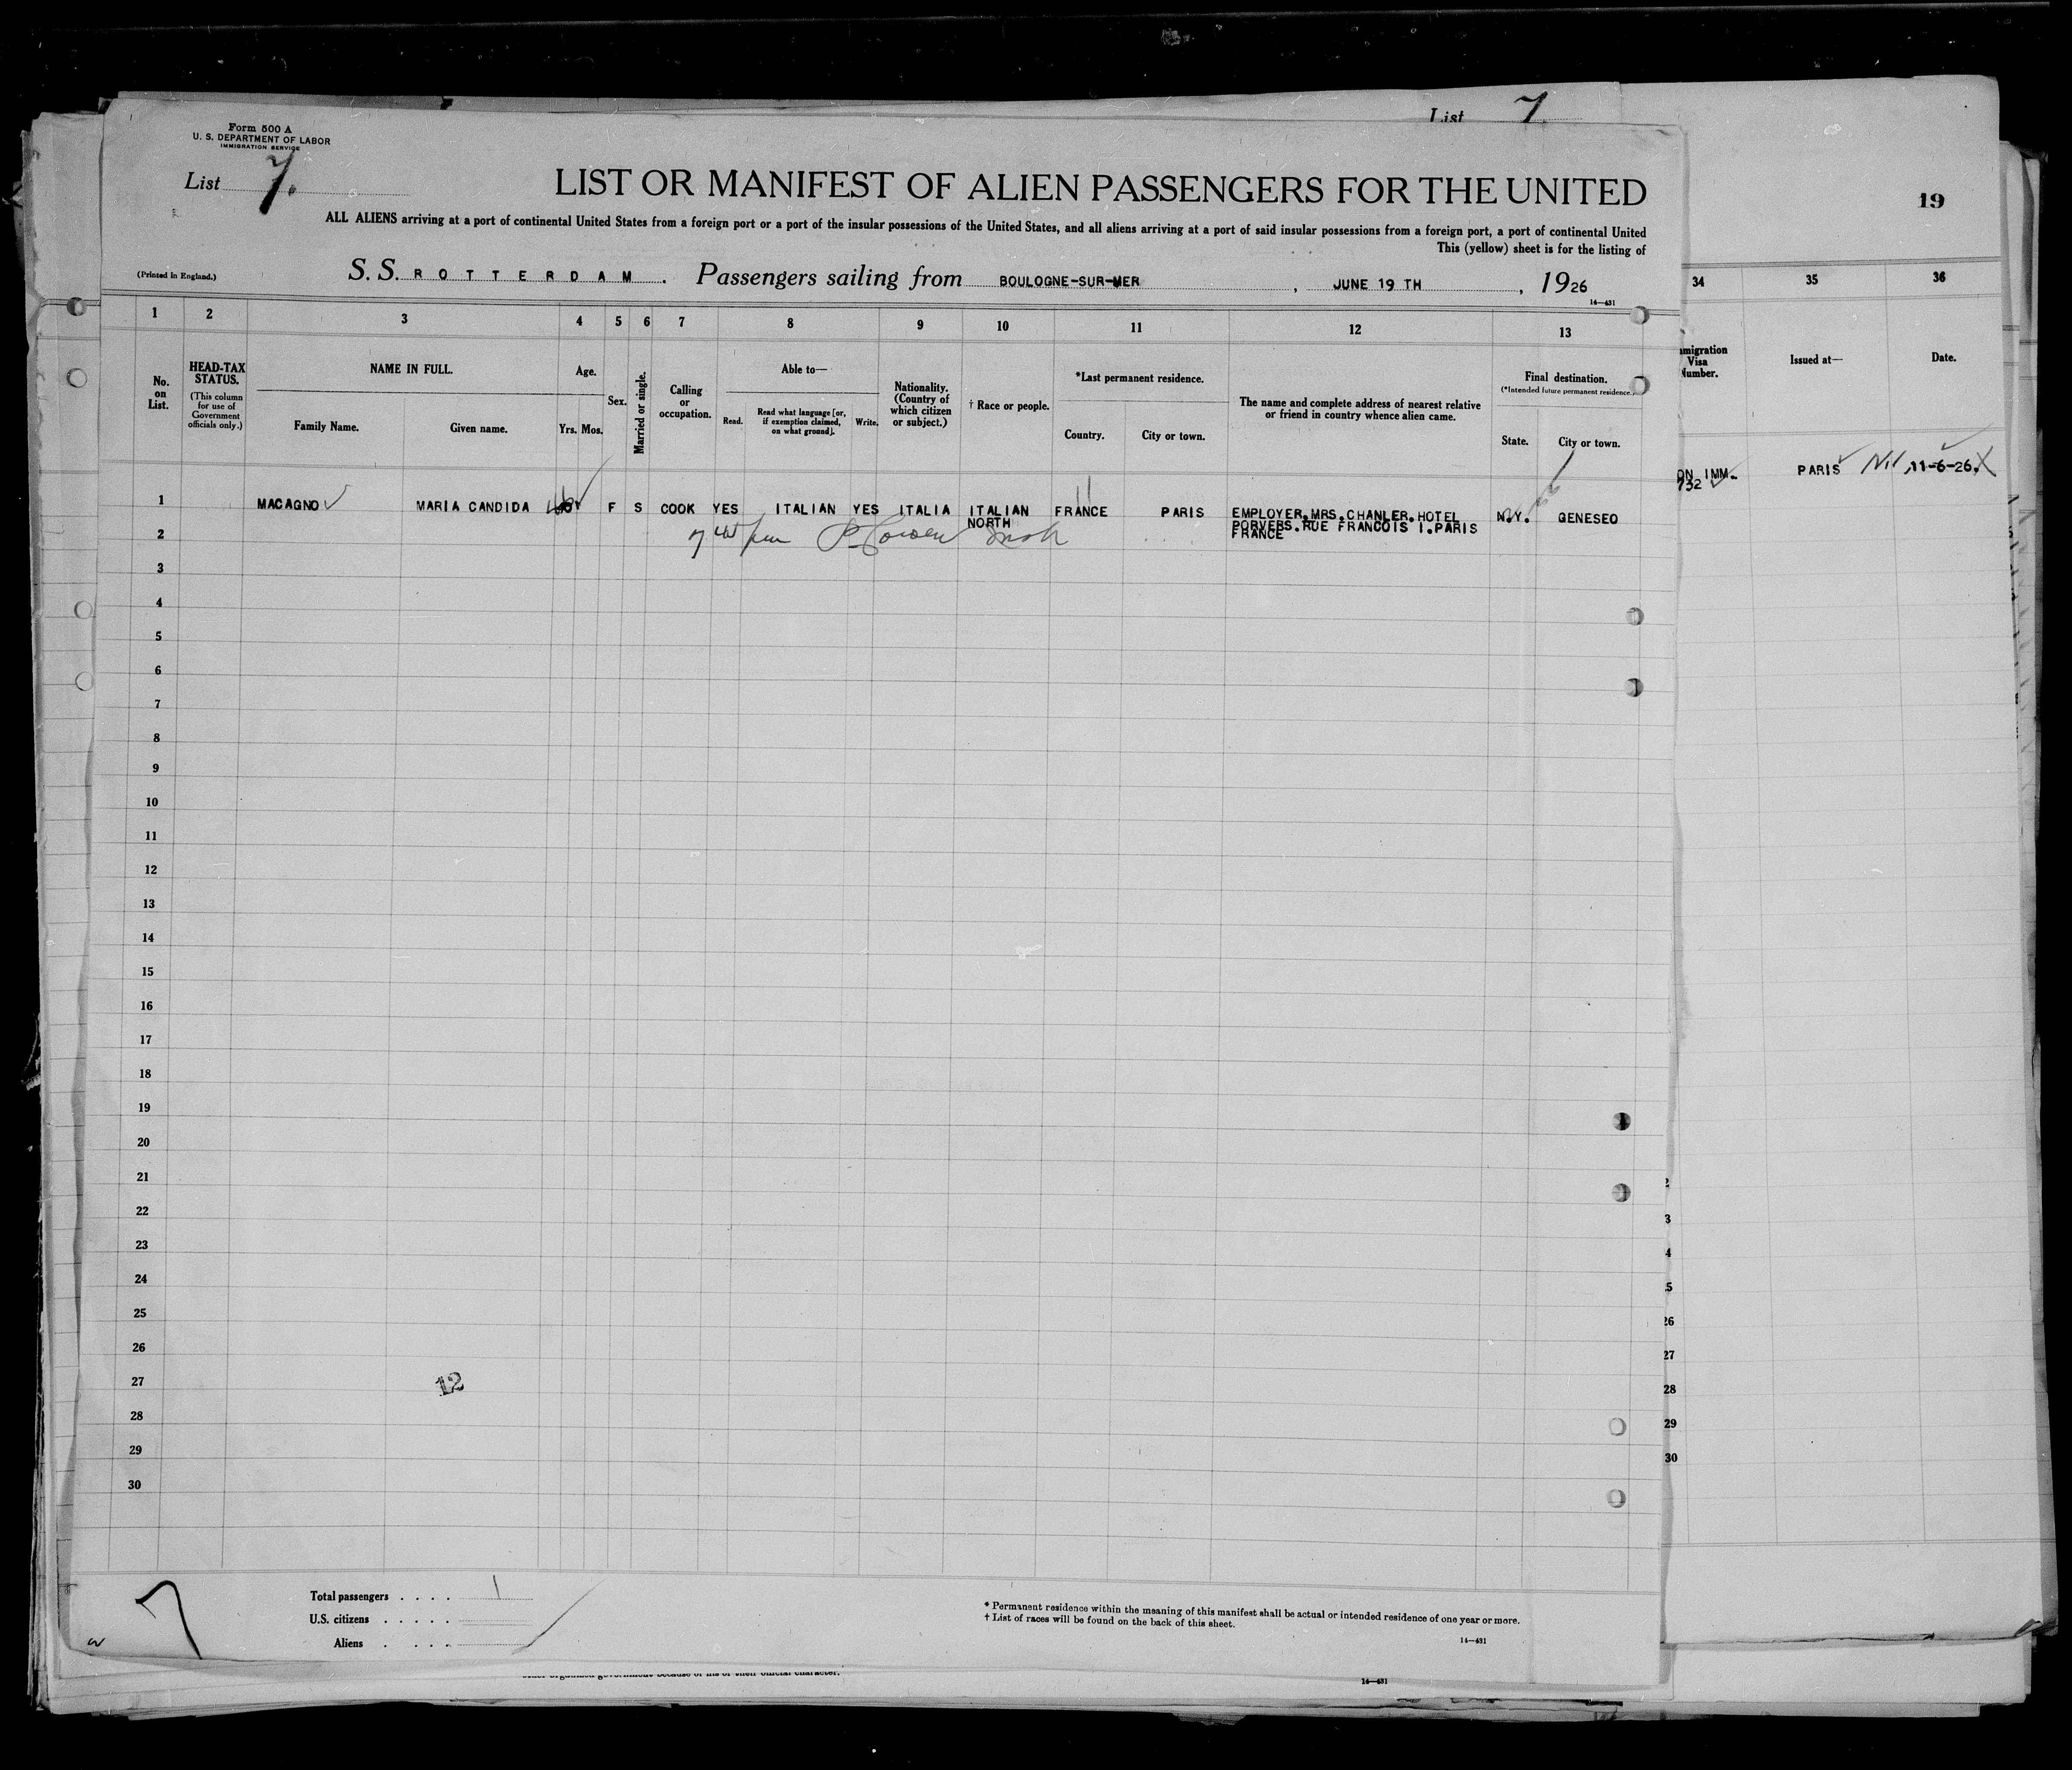 List 7
Form 500 A
U. S. DEPARTMENT OF LABOR
IMMIGRATION SERVICE
List 7.
LIST OR MANIFEST OF ALIEN PASSENGERS FOR THE UNITED
19
ALL ALIENS arriving at a port of continental United States from a foreign port or a port of the insular possessions of the United States, and all aliens arriving at a port of said insular possessions from a foreign port, a port of continental United
This (yellow) sheet is for the listing of
(Printed in England.)
S. S. ROTTERDAM. Passengers sailing from BOULOGNE-SUR-MER, JUNE 19 TH, 1926
14—431
1 2 3 4 5 6 7 8 9 10 11 12 13 34 35 36
No. on List.
HEAD-TAX STATUS.
(This column for use of Government officials only.)
NAME IN FULL.
Family Name. Given name.
Age.
Yrs. Mos.
Sex.
Married or single.
Calling or occupation.
Able to—
Read. Read what language [or, if exemption claimed, on what ground]. Write.
Nationality. (Country of which citizen or subject.)
† Race or people.
*Last permanent residence.
Country. City or town.
The name and complete address of nearest relative or friend in country whence alien came.
Final destination.
(*Intended future permanent residence.)
State. City or town.
mmigration Visa Number.
Issued at—
Date.
1 MACAGNO MARIA CANDIDA F S COOK YES ITALIAN YES ITALIA ITALIAN NORTH FRANCE PARIS EMPLOYER.MRS.CHANLER.HOTEL
PORVERS.RUE FRANCOIS I.PARIS
FRANCE
N.Y. GENESEO
ON IMM.
732
PARIS 11-6-26.
2
3
4
5
6
7
8
9
10
11
12
13
14
15
16
17
18
19
20
21
22
23
24
25
26
27
28
29
30
12
2
3
4
5
26
27
28
29
30
7
Total passengers . . . . 1
U.S. citizens . . . . .
Aliens . . . .
* Permanent residence within the meaning of this manifest shall be actual or intended residence of one year or more.
† List of races will be found on the back of this sheet.
14—431
14—431